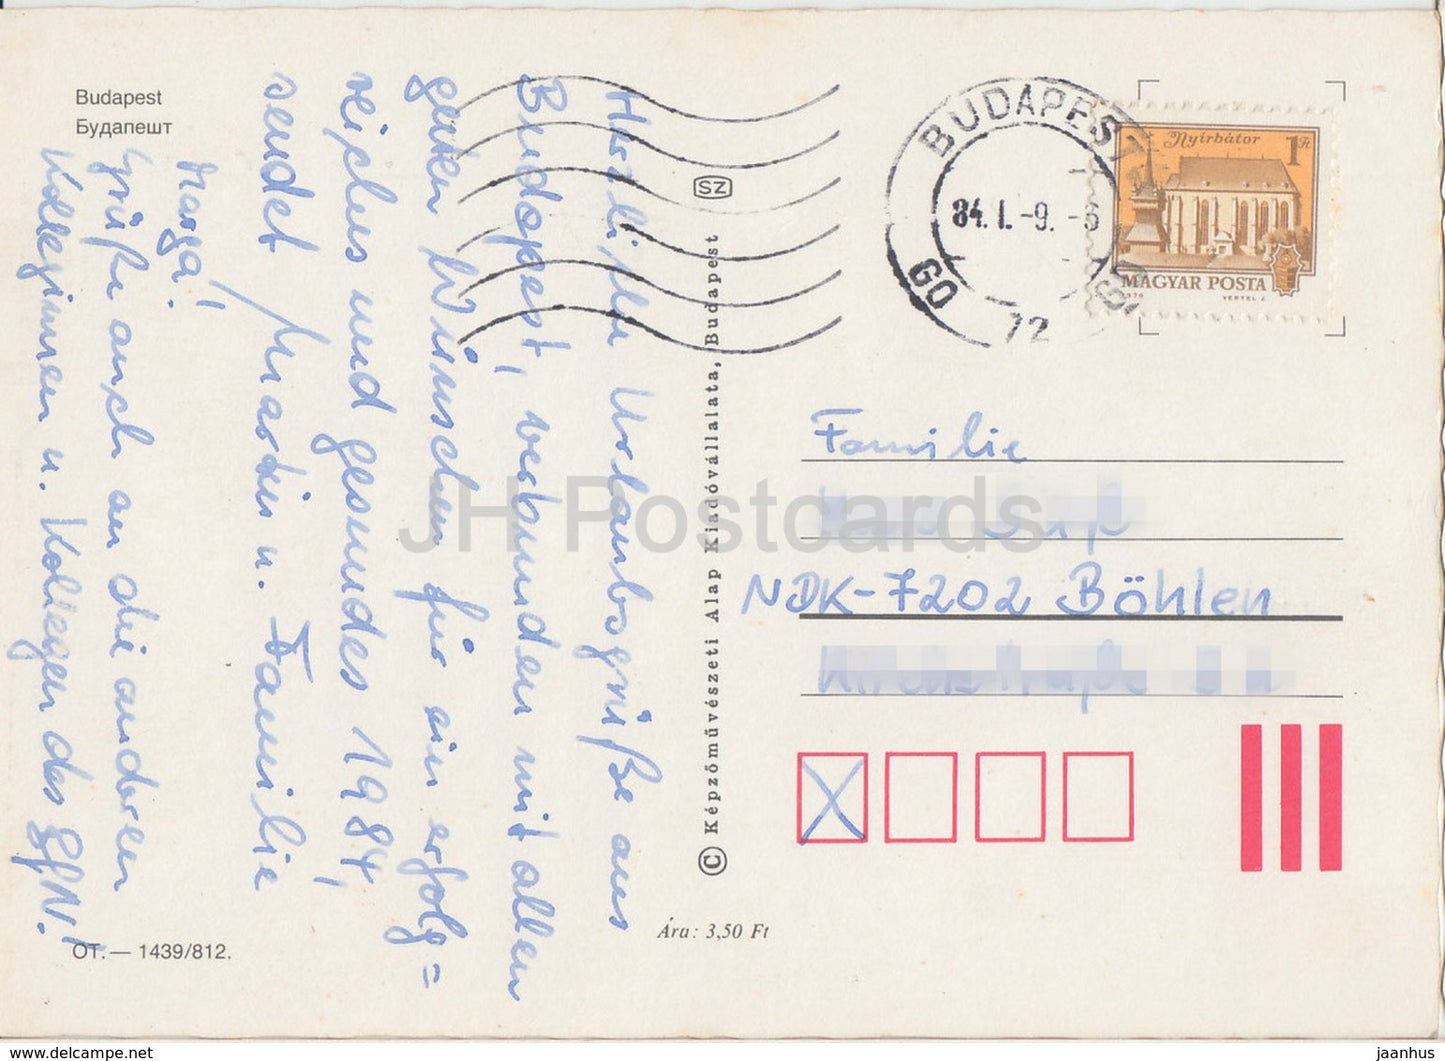 Budapest
Будапешт
Herzliche Urlaubsgrüße aus
Budapest, verbunden mit allen
guten Wünschen für ein erfolg=
reiches und gesundes 1984,
sendet Martin u. Familie
Marga!
Grüße auch an die anderen
Kolleginnen u. Kollegen des
OT. — 1439/812.
SZ
© Képzőművészeti Alap Kiadóvállalata, Budapest
Ára: 3,50 Ft
BUDAPEST
84. I. -9. -6
72
Nyírbátor
1 Ft
MAGYAR POSTA
1979 VERTEL J.
Familie
NDK-7202 Böhlen
JH Postcards
https://www.delcampe.net
jaanhus